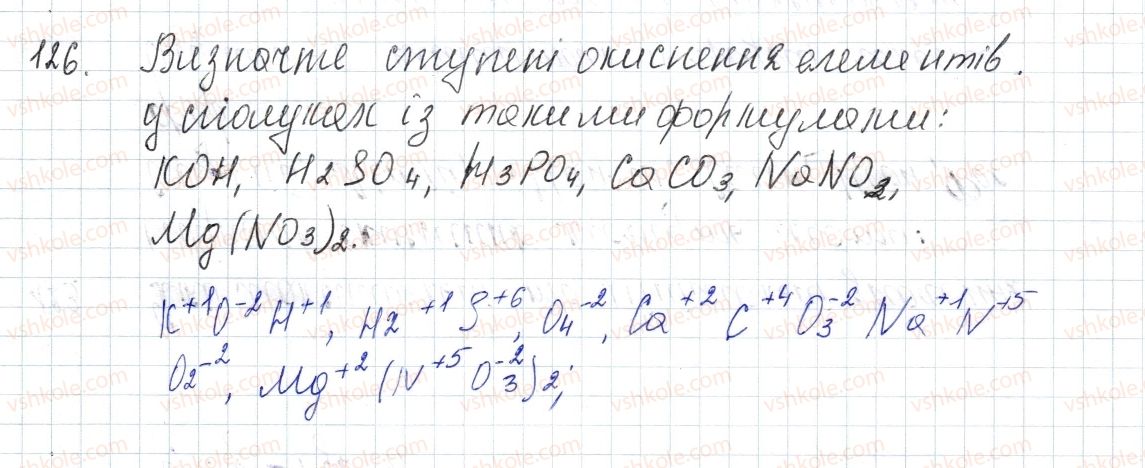 126. Визначте ступені окиснення елементів.
у сполуках із такими формулами:
KOH, H2SO4, H3PO4, CaCO3, NaNO2,
Mg(NO3)2.
K+1O-2H+1, H2+1S+6, O4-2, Ca+2C+4O3-2 Na+1N+5
O2-2, Mg+2(N+5O3-2)2;